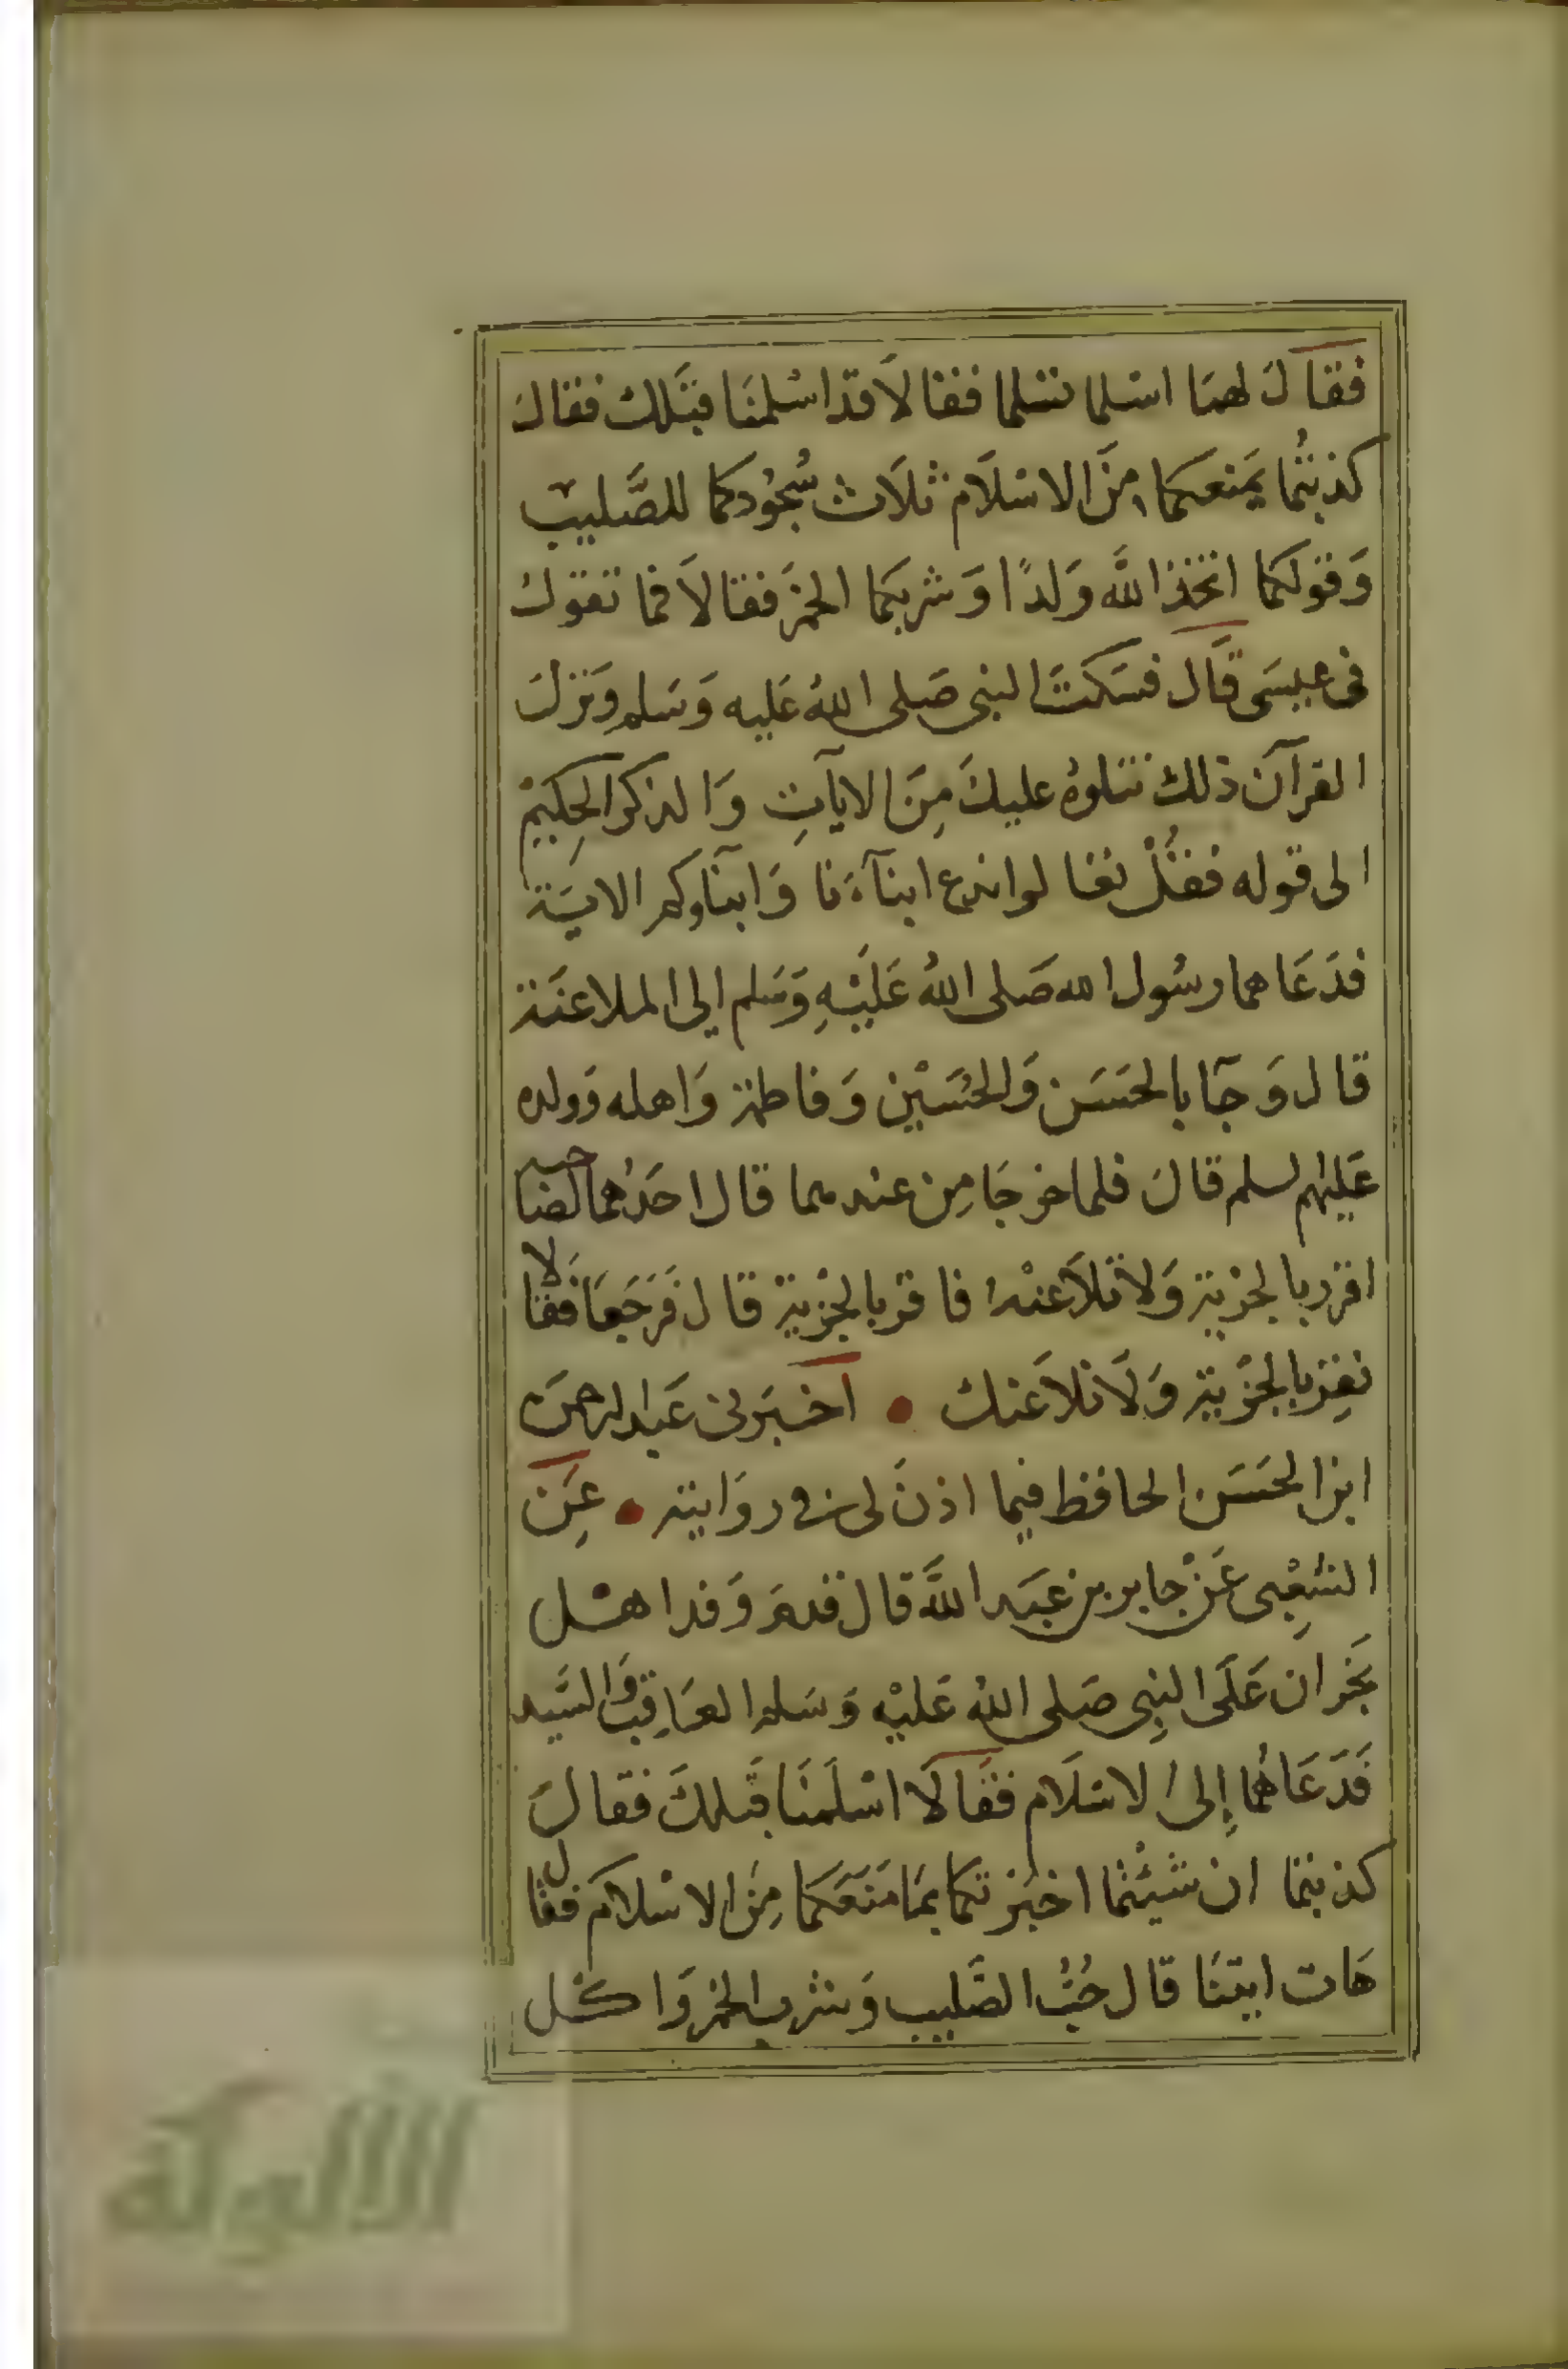 فقالَ لهمَا اسلما تسلما فقالَا قد اسْلمنَا قبَلك فقالَ
كذبتُما يَمنعكما مِنَ الاسْلَام ثلَاث سُجُودكما للصَّليب
وَقولكما اتخذ اللَّه وَلدًا وَشربكما الخمرَ فقالَا فما تقول
فى عيسَى قَال فسَكتَ النبى صَلى اللهُ عَليه وَسَلم وَنزلَ
القرآن ذلك نتلوهُ عليكَ مِنَ الايآتِ وَالذكر الحِكيمْ
الى قوله فقُلْ تعالوا ندع ابنآءَنا وَابنآوكم الايَة
فدَعَاهما رسُول الله صَلى اللهُ عَليْهِ وَسَلم اِلى الملاعنَة
قال وَجآ بالحسَن وَالحُسَيْن وَفاطمة وَاهله وَولده
عَليْهم لسلم قالَ فلما خرجَا مِن عندهما قال احَدُهما لصَاحبه
اقرر بالجْزية وَلا تلَاعنْه فاقر بالجْزية قال فَرَجَعَا فقالا
نقِر بالجْزية وَلَا نلَاعنك • اخبَرنى عَبد الرحمن
ابن الحسَن الحافظ فيما اذنَ لى فى روَايته • عَن
الشعِْبى عَنْ جابر بن عبَد اللَّه قال قدمَ وَفد اهْل
نَجرَان عَلَى النبِى صَلى اللهُ عَليْه وَسَلم العَاقِب وَالسَّيد
فَدَعَاهُما اِلى الاسْلَام فقَالَا اسْلَمنَا قَبلكَ فقالَ
كذبتما ان شئْتما اخبَرتكما بمَا مَنَعَكما مِنَ الاسْلَام فقال
هَات ابتنَا قال حُبُّ الصَّليب وَشرب الخمر وَاكْل
الألوكة